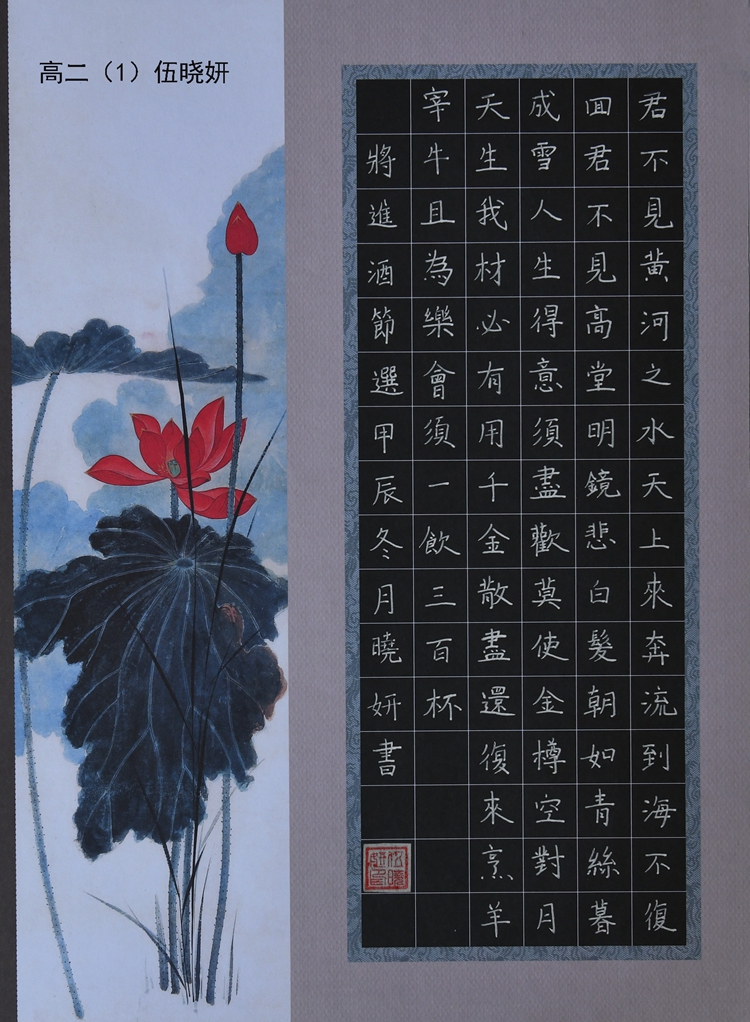 高二（1）伍晓妍
君不見黃河之水天上來奔流到海不復
囬君不見高堂明鏡悲白髮朝如青絲暮
成雪人生得意須盡歡莫使金樽空對月
天生我材必有用千金散盡還復來烹羊
宰牛且為樂會須一飲三百杯
將進酒節選甲辰冬月曉妍書
伍曉妍印